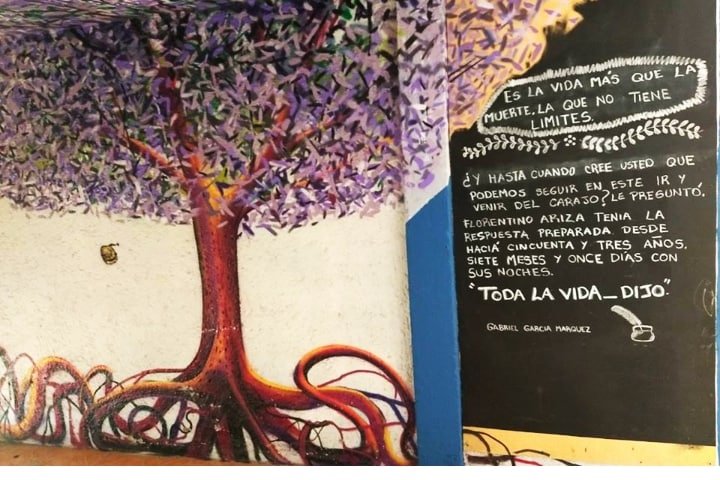 ES LA VIDA MÁS QUE LA
MUERTE, LA QUE NO TIENE
LIMITES.
¿Y HASTA CUANDO CREE USTED QUE
PODEMOS SEGUIR EN ESTE IR Y
VENIR DEL CARAJO? LE PREGUNTÓ.
FLORENTINO ARIZA TENIA LA
RESPUESTA PREPARADA DESDE
HACIÁ CINCUENTA Y TRES AÑOS,
SIETE MESES Y ONCE DÍAS CON
SUS NOCHES.
"TODA LA VIDA_ DIJO".
GABRIEL GARCIA MARQUEZ